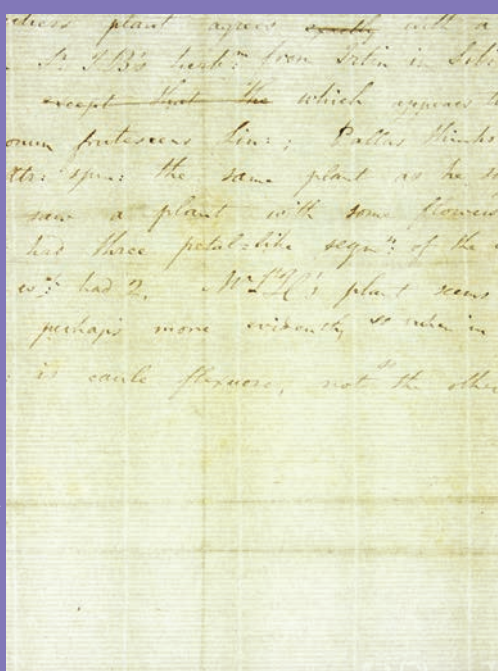 plant agrees exactly with a
Sr. J.B's herb.m from Irtin in Sib
except that the which appears t
onum frutescens Lin: ; Pallas thinks
Atr: spin: the same plant as he s
saw a plant with some flowers
had three petal-like segm.ts of the
w.ch had 2. plant seems
perhaps more evidently so when in
is caule flexuoso, not so the othe